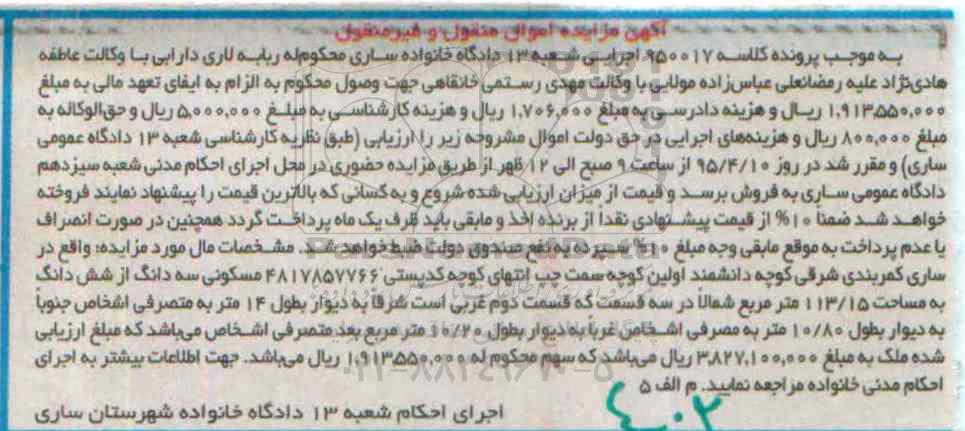 آگهی مزایده اموال منقول و غیرمنقول
به موجب پرونده کلاسه ۹۵۰۰۱۷ اجرایی شعبه ۱۳ دادگاه خانواده ساری محکوم‌له ربابه لاری دارابی با وکالت عاطفه
هادی‌نژاد علیه رمضانعلی عباس‌زاده مولایی با وکالت مهدی رستمی خانقاهی جهت وصول محکوم به الزام به ایفای تعهد مالی به مبلغ
۱,۹۱۳,۵۵۰,۰۰۰ ریال و هزینه دادرسی به مبلغ ۱,۷۰۶,۰۰۰ ریال و هزینه کارشناسی به مبلغ ۵,۰۰۰,۰۰۰ ریال و حق‌الوکاله به
مبلغ ۸۰۰,۰۰۰ ریال و هزینه‌های اجرایی در حق دولت اموال مشروحه زیر را ارزیابی (طبق نظریه کارشناسی شعبه ۱۳ دادگاه عمومی
ساری) و مقرر شد در روز ۹۵/۴/۱۰ از ساعت ۹ صبح الی ۱۲ ظهر از طریق مزایده حضوری در محل اجرای احکام مدنی شعبه سیزدهم
دادگاه عمومی ساری به فروش برسد و قیمت از میزان ارزیابی شده شروع و به کسانی که بالاترین قیمت را پیشنهاد نمایند فروخته
خواهد شد ضمناً ۱۰% از قیمت پیشنهادی نقداً از برنده اخذ و مابقی باید ظرف یک ماه پرداخت گردد همچنین در صورت انصراف
یا عدم پرداخت به موقع مابقی وجه مبلغ ۱۰% سپرده به نفع صندوق دولت ضبط خواهد شد. مشخصات مال مورد مزایده: واقع در
ساری کمربندی شرقی کوچه دانشمند اولین کوچه سمت چپ انتهای کوچه کدپستی ۴۸۱۷۸۵۷۷۶۶ مسکونی سه دانگ از شش دانگ
به مساحت ۱۱۳/۱۵ متر مربع شمالاً در سه قسمت که قسمت دوم غربی است شرقاً به دیوار بطول ۱۴ متر به متصرفی اشخاص جنوباً
به دیوار بطول ۱۰/۸۰ متر به مصرفی اشخاص غرباً به دیوار بطول ۱۰/۲۰ متر مربع بعد متصرفی اشخاص می‌باشد که مبلغ ارزیابی
شده ملک به مبلغ ۳,۸۲۷,۱۰۰,۰۰۰ ریال می‌باشد که سهم محکوم له ۱,۹۱۳,۵۵۰,۰۰۰ ریال می‌باشد. جهت اطلاعات بیشتر به اجرای
احکام مدنی خانواده مراجعه نمایید. م الف ۵
اجرای احکام شعبه ۱۳ دادگاه خانواده شهرستان ساری